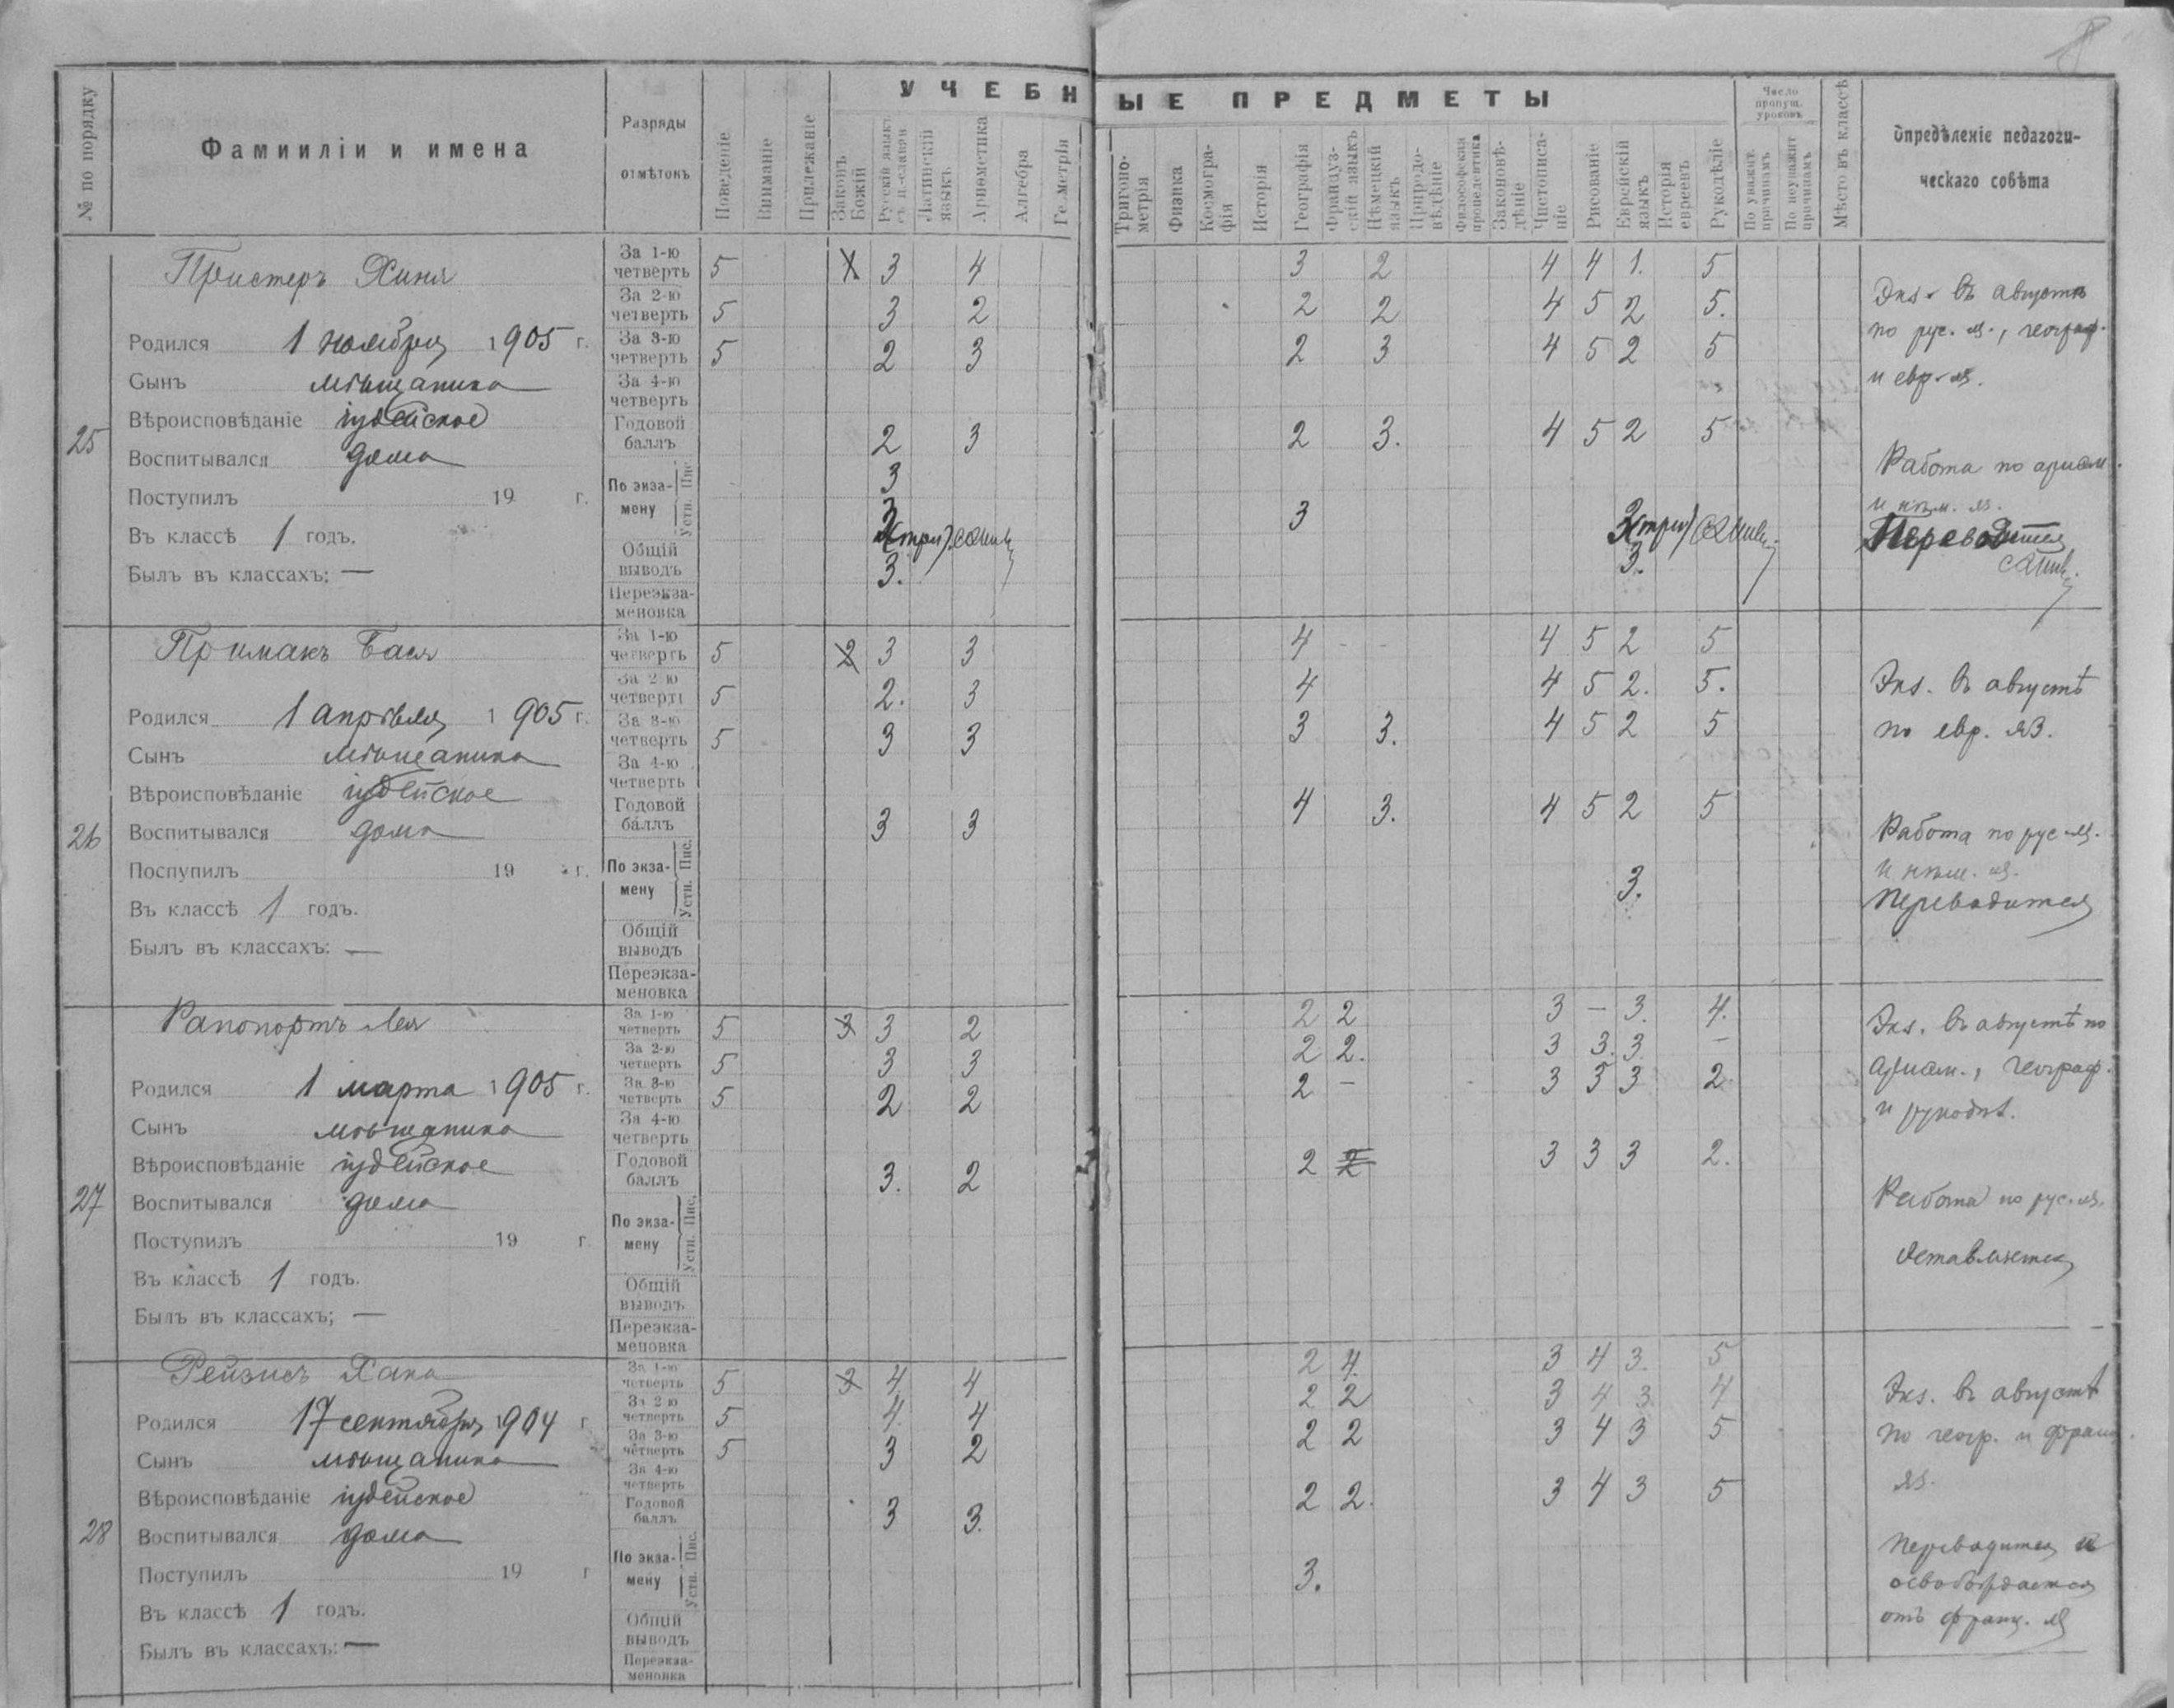 УЧЕБНЫЕ ПРЕДМЕТЫ
№ по порядку
Фамииліи и имена
Разряды отмѣтокъ
Поведеніе
Вниманіе
Прилежаніе
Законъ Божій
Русскій языкъ съ ц.-славян
Латинскій языкъ
Ариѳметика
Алгебра
Геметрія
Тригонометрія
Физика
Космографія
Исторія
Географія
Французскій языкъ
Нѣмецкій языкъ
Природовѣдѣніе
Философская пропедевтика
Законовѣдѣніе
Чистописаніе
Рисованіе
Еврейскій языкъ
Исторія евреевъ
Рукодѣліе
Число пропущ. уроковъ
По уважит. причинамъ
По неуважит причинамъ
Мѣсто въ классѣ
Опредѣленіе педагогическаго совѣта
25
Пристеръ Хиня
Родился 1 ноября 1905 г.
Сынъ мѣщанина
Вѣроисповѣданіе іудейское
Воспитывался дома
Поступилъ 19 г.
Въ классѣ 1 годъ.
Былъ въ классахъ; —
За 1-ю четверть 5 X 3 4 3 2 4 4 1. 5
За 2-ю четверть 5 3 2 2 2 4 5 2 5.
За 3-ю четверть 5 2 3 2 3 4 5 2 5
За 4-ю четверть
Годовой баллъ 2 3 2 3. 4 5 2 5
По экзамену Пис. 3
Устн. 3 (три) 3 3 (три)
Общій выводъ 3. 3.
Переэкзаменовка
Экз. въ августѣ
по рус. яз., географ.
и евр. яз.
Работа по ариѳм.
и нѣм. яз.
Переводится
26
Примакъ Бася
Родился 1 апрѣля 1905 г.
Сынъ мѣщанина
Вѣроисповѣданіе іудейское
Воспитывался дома
Поспупилъ 19 г.
Въ классѣ 1 годъ.
Былъ въ классахъ: —
За 1-ю четверть 5 2 3 3 4 - - 4 5 2 5
За 2-ю четверть 5 2. 3 4 4 5 2. 5.
За 3-ю четверть 5 3 3 3 3. 4 5 2 5
За 4-ю четверть
Годовой баллъ 3 3 4 3. 4 5 2 5
По экзамену Пис.
Устн. 3.
Общій выводъ
Переэкзаменовка
Экз. въ августѣ
по евр. яз.
Работа по рус яз.
и нѣм. яз.
Переводится
27
Рапопортъ Лея
Родился 1 марта 1905 г.
Сынъ мѣщанина
Вѣроисповѣданіе іудейское
Воспитывался дома
Поступилъ 19 г.
Въ классѣ 1 годъ.
Былъ въ классахъ; —
За 1-ю четверть 5 3 3 2 2 2 3 – 3. 4.
За 2-ю четверть 5 3 3 2 2. 3 3. 3. –
За 3-ю четверть 5 2 2 2 – 3 3 3 2.
За 4-ю четверть
Годовой баллъ 3. 2 2 2 3 3 3 2.
По экзамену Пис.
Устн.
Общій выводъ
Переэкзаменовка
Экз. въ августѣ по
ариѳм., географ.
и рукодѣл.
Работа по рус. яз.
Оставляется
28
Рейзисъ Хана
Родился 17 сентября 1904 г
Сынъ мѣщанина
Вѣроисповѣданіе іудейское
Воспитывался дома
Поступилъ 19 г
Въ классѣ 1 годъ.
Былъ въ классахъ: —
За 1-ю четверть 5 3 4 4 2 4. 3 4 3. 5
За 2-ю четверть 5 4. 4 2 2 3 4 3. 4
За 3-ю четверть 5 3 2 2 2 3 4 3 5
За 4-ю четверть
Годовой баллъ 3 3. 2 2. 3 4 3 5
По экзамену Пис.
Устн. 3.
Общій выводъ
Переэкзаменовка
Экз. въ августѣ
по геогр. и франц.
яз.
Переводится и
освобождается
отъ франц. яз